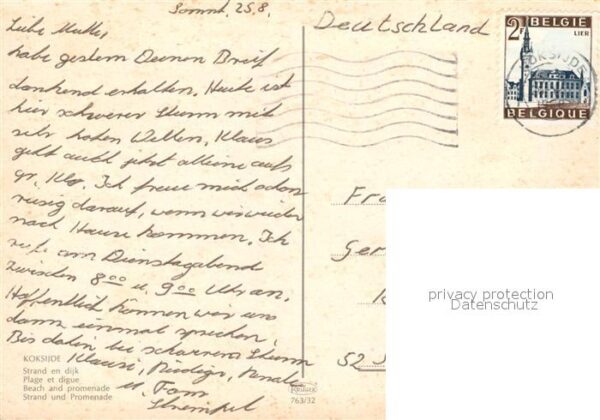 Sonnt. 25.8.
Liebe Mutter,
habe gestern Deinen Brief
dankend erhalten. Heute ist
hier schwerer Sturm mit
sehr hohen Wellen. Klaus
geht auch jetzt alleine aufs
gr. Klo. Ich freue mich schon
riesig darauf, wenn wir wieder
nach Hause kommen. Ich
rufe am Dienstagabend
zwischen 8 00 u. 9 00 Uhr an.
Hoffentlich können wir uns
dann einmal sprechen.
Bis dahin bei scharrem Sturm
Klausi, Renate
u. Tom
KOKSIJDE
Strand en dijk
Plage et digue
Beach and promenade
Strand und Promenade
763/32
Deutschland
2F BELGIE
LIER
KOKSIJDE
BELGIQUE
Fra
Ger
52
privacy protection
Datenschutz